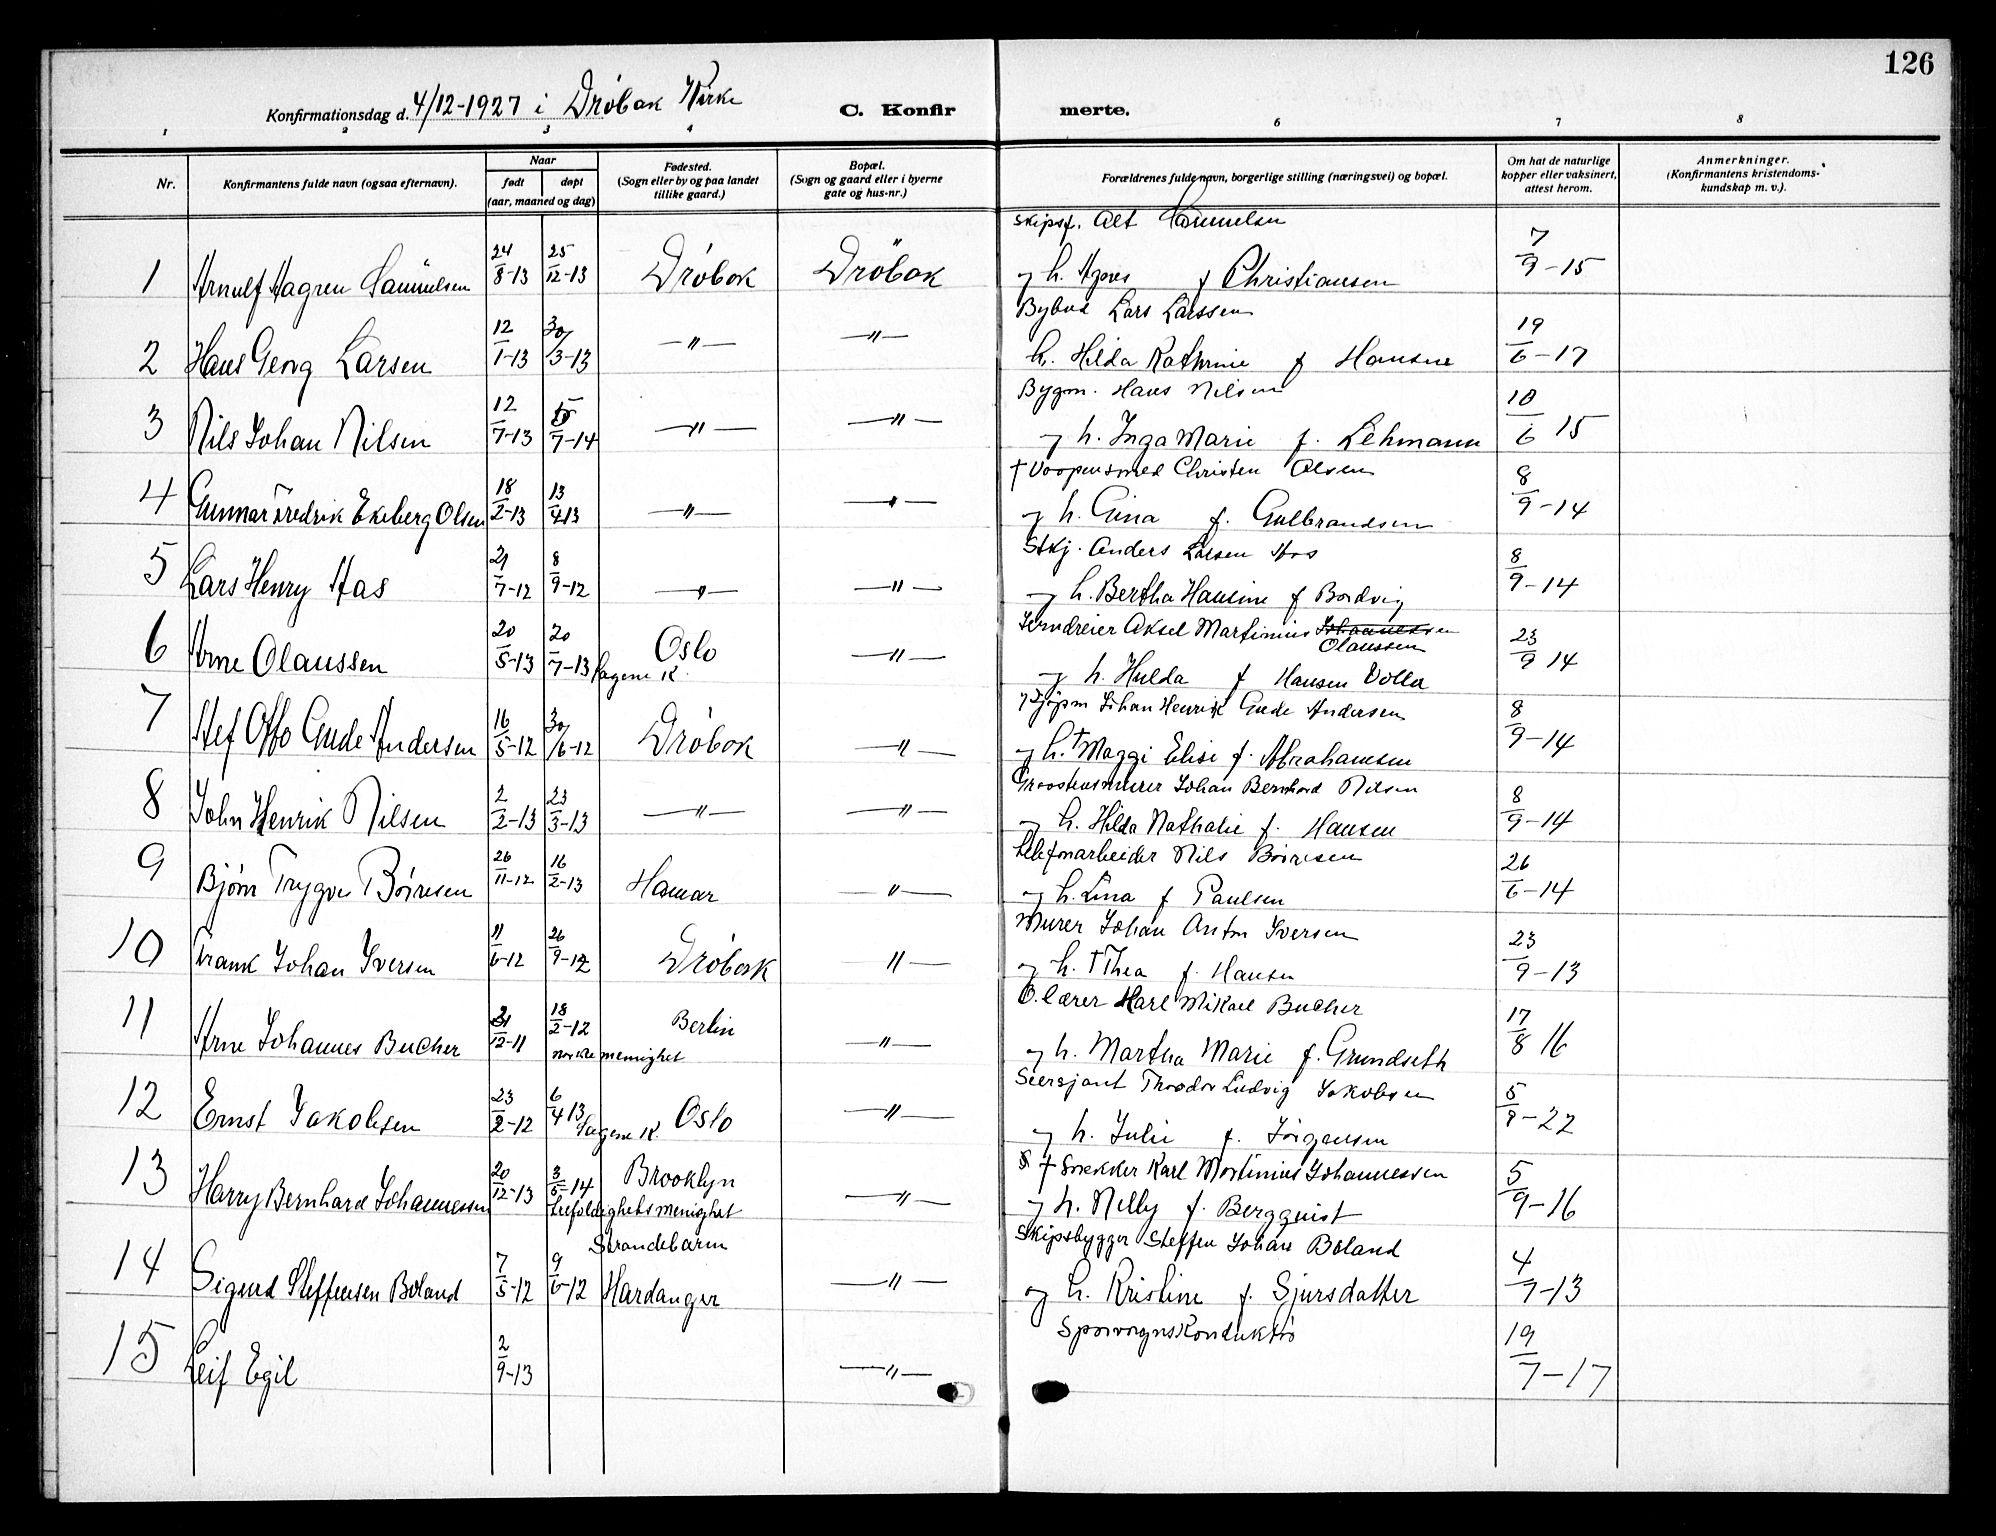 126
Konfirmationsdag d. 4/12-1927 i Drøbak Kirke
C. Konfirmerte.
1 2 3 4 6 7 8
Nr. Konfirmantens fulde navn (ogsaa efternavn). Naar født døpt (aar, maaned og dag) Fødested. (Sogn eller by og paa landet tillike gaard.) Bopæl. (Sogn og gaard eller i byerne gate og hus-nr.) Forældrenes fulde navn, borgerlige stilling (næringsvei) og bopæl. Om hat de naturlige kopper eller vaksinert, attest herom. Anmerkninger. (Konfirmantens kristendomskundskap m. v.).
Skipsf. Alf Samuelsen
1 Arnulf Hagren Samuelsen 24/8-13 25/12-13 Drøbak Drøbak og h. Agnes f Christiansen 7/9-15
Bybud Lars Larssen
2 Hans Georg Larsen 12/1-13 30/3-13 -"- -"- h. Hilda Kathrine f Hansen 19/6-17
Bygm. Hans Nilsen
3 Nils Johan Nilsen 12/7-13 /7-14 -"- -"- og h. Inga Marie f. Lehmann 10/6 15
† Vaapensmed Christen Olsen
4 Gunnar Fredrik Ekeberg Olsen 18/2-13 13/4 13 -"- -"- og h. Gina f. Gulbrandsen 8/9-14
Stkj. Anders Larsen Has
5 Lars Henry Has 21/7-12 8/9-12 -"- -"- og h. Bertha Hansine f Bordvig 8/9-14
Jerndreier Aksel Martinius Johannessen Olaussen
6 Arne Olaussen 20/5-13 20/7-13 Oslo Sagene K. -"- og h. Hulda f Hansen Volla 23/9 14
Kjøpm Johan Henrik Gude Andersen
7 Alf Otto Gude Andersen 16/5-12 30/6-12 Drøbak -"- og h. † Maggi Elise f. Abrahamsen 8/9-14
Graastensmurer Johan Bernhard Nilsen
8 John Henrik Nilsen 2/2-13 23/3-13 -"- -"- og h. Hilda Nathalie f. Hansen 8/9-14
Telefonarbeider Nils Børresen
9 Bjørn Trygve Børresen 26/11-12 16/2-13 Hamar -"- og h. Lina f Paulsen 26/6-14
Murer Johan Anton Iversen
10 Frank Johan Iversen 11/6-12 26/9-12 Drøbak -"- og h. † Thea f. Hansen 23/9-13
O. lærer Karl Mikael Bucher
11 Arne Johannes Bucher /12-11 18/2-12 norske menighet Berlin -"- og h. Martha Marie f. Grundseth 17/8 16
Seersjant Theodor Ludvig Jakobsen
12 Ernst Jakobsen 23/2-12 6/4 13 Sagene K. Oslo -"- og h. Julie f. Jørgensen 5/9-22
† Snekker Karl Martinius Johannessen
13 Harry Bernhard Johannessen 20/12-13 3/5-14 Brooklyn trefoldighets menighet -"- og h. Nelly f. Bergquist 5/9-16
Skipsbygger Steffen Johan Boland
14 Sigurd Steffensen Boland 7/5-12 9/6-12 Strandebarm Hardanger -"- og h. Kristine f. Sjursdatter 4/7-13
Sporvognskonduktø
15 Leif Egil 2/9-13 -"- 19/7-17